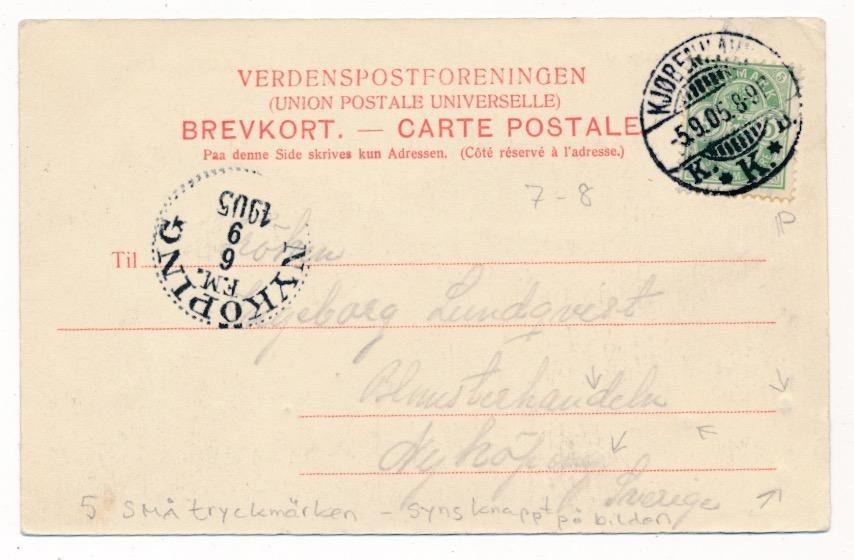 VERDENSPOSTFORENINGEN
(UNION POSTALE UNIVERSELLE)
BREVKORT. — CARTE POSTALE
Paa denne Side skrives kun Adressen. (Côté réservé à l'adresse.)
KJØBENHAVN
-5.9.05.8-9
K. ★ K. ★ B.
7-8
P
NYKÖPING
1905
9
6
F.M.
Til Fröken
Ingeborg Lundqvist
Blomsterhandeln
Nyköping
Sverige
5 SMÅ tryckmärken - syns knappt på bilden